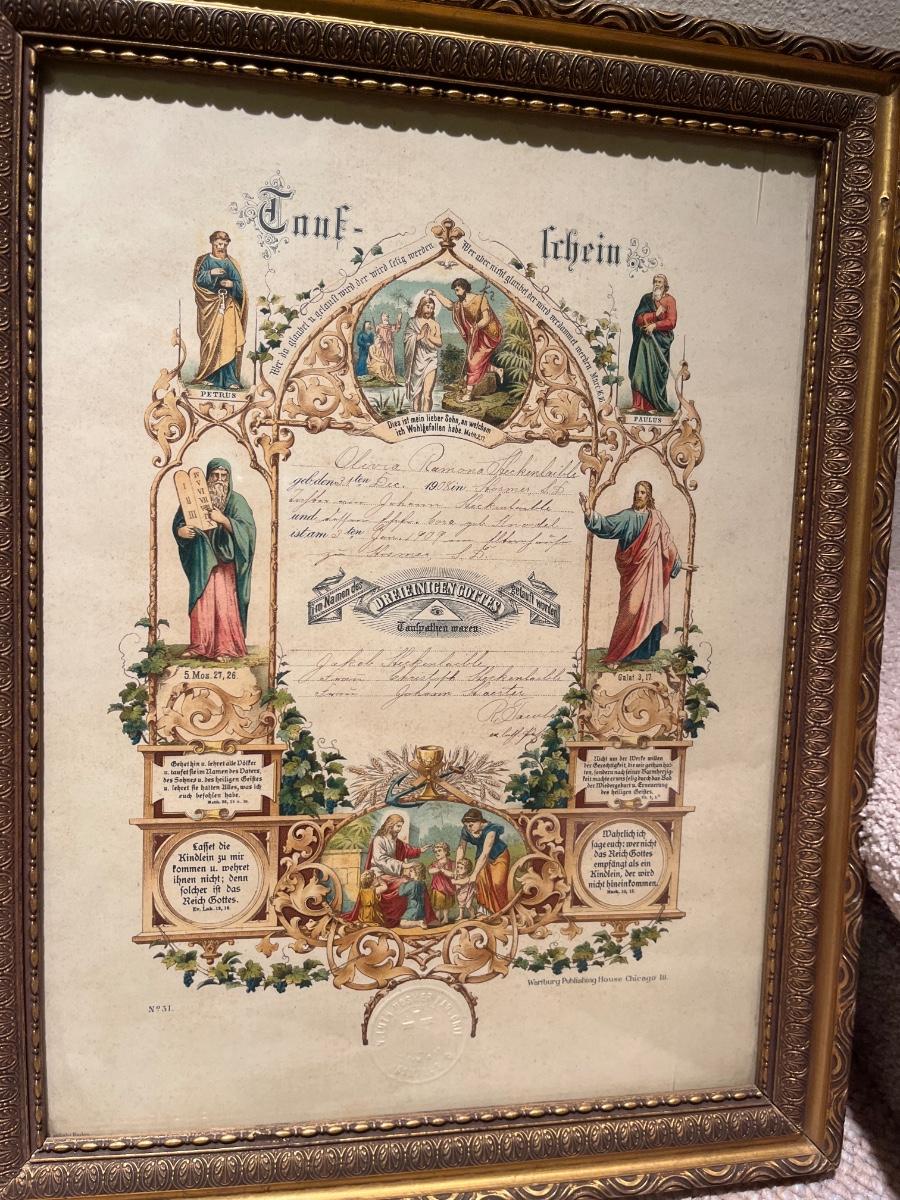 Tauf-
schein
Wer da glaubet u. getauft wird der wird selig werden
Wer aber nicht glaubet der wird verdammet werden Marc.
PETRUS
PAULUS
Dies ist mein lieber Sohn, an welchem
ich Wohlgefallen habe. Matth. 3,17.
Olivia Ramona Heckenlaible
geb. den 31ten Dec. 1908 in S.D.
Tochter von Johann Heckenlaible
und dessen Ehefr. Cora geb.
ist am 3ten Jan. 1909 im
zu S.D.
im Namen des
DREIEINIGEN GOTTES
getauft worden
Taufpathen waren
Jakob Heckenlaible
Frau Christoph Heckenlaible
Frau Johann
5. Mos. 27, 26.
Galat 3, 17.
Gehet hin u. lehret alle Völker
u. taufet sie im Namen des Vaters,
des Sohnes u. des heiligen Geistes
u. lehret sie halten Alles, was ich
euch befohlen habe.
Nicht um der Werke willen
der Gerechtigkeit, die wir gethan hat-
ten, sondern nach seiner Barmherzig-
keit machte er uns selig durch das Bad
der Wiedergeburt u. Erneuerung
des heiligen Geistes.
Lasset die
Kindlein zu mir
kommen u. wehret
ihnen nicht; denn
solcher ist das
Reich Gottes.
Ev. Luk. 18, 16.
Wahrlich ich
sage euch: wer nicht
das Reich Gottes
empfängt als ein
Kindlein, der wird
nicht hineinkommen.
Mark. 10, 15.
Wartburg Publishing House Chicago Ill.
No 31.